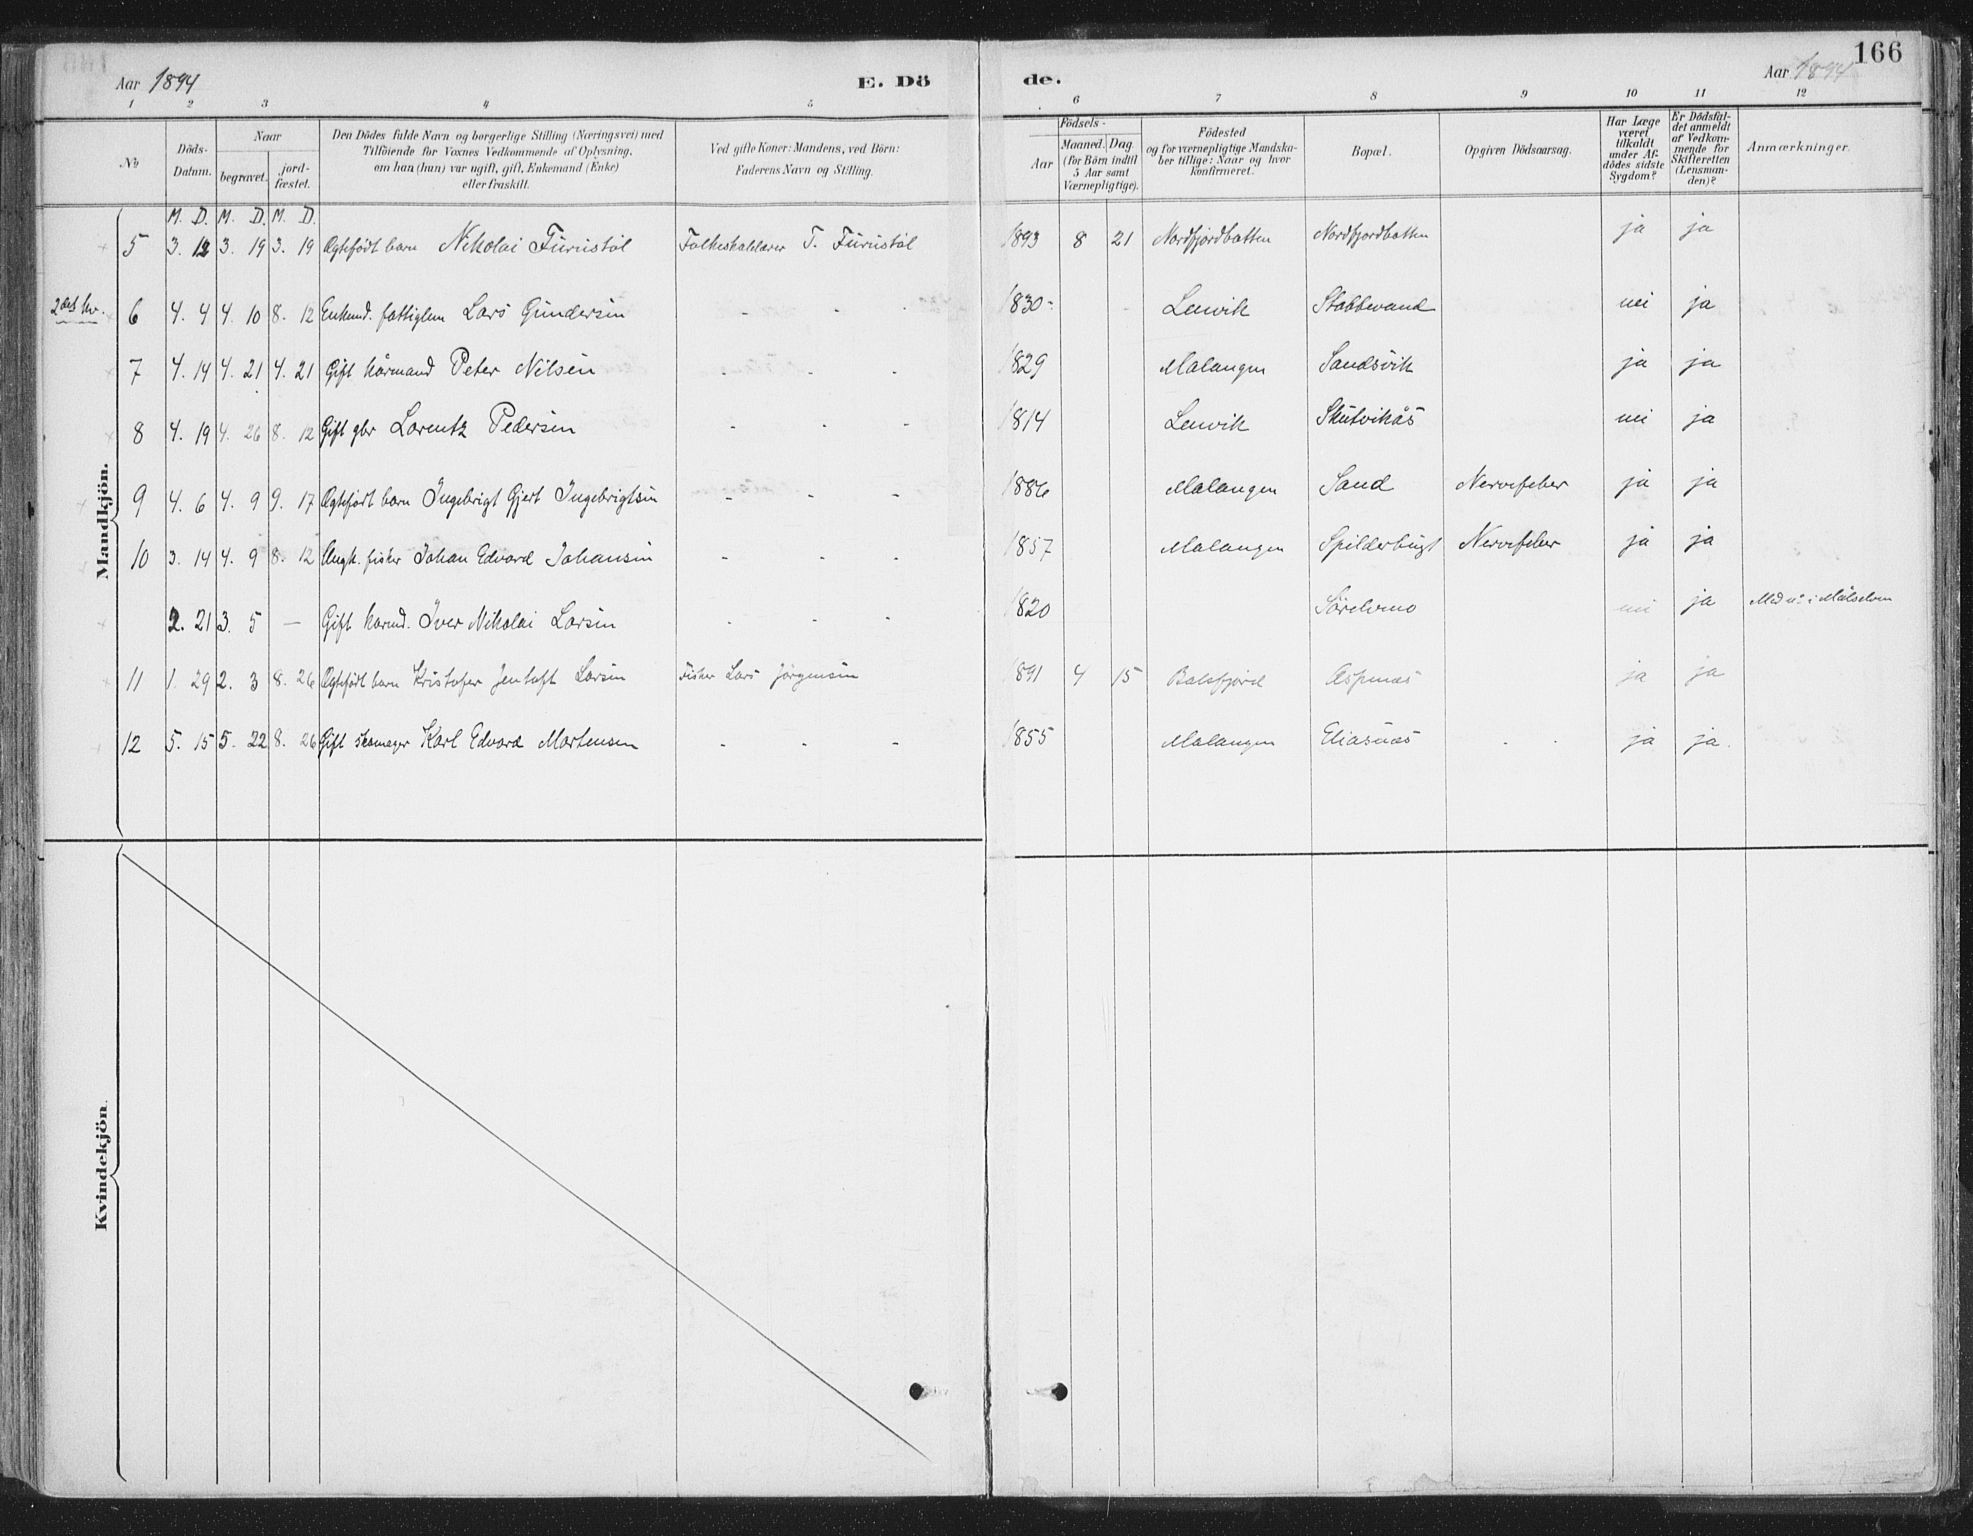 Aar 1894 E. Dö de. Aar 1894 166
1 2 3 4 5 6 7 8 9 10 11 12
No Döds-Datum. Naar begravet. jordfæstet. Den Dödes fulde Navn og borgerlige Stilling (Næringsvei) med Tilföiende for Voxnes Vedkommende af Oplysning, om han (hun) var ugift, gift, Enkemand (Enke) eller fraskilt. Ved gifte Koner: Mandens, ved Börn: Faderens Navn og Stilling. Födsels- Aar Maaned. Dag. (for Börn indtil 5 Aar samt Værnepligtige). Födested og for værnepligtige Mandskaber tillige: Naar og hvor konfirmeret. Bopæl. Opgiven Dödsaarsag. Har Læge været tilkaldt under Afdödes sidste Sygdom? Er Dödsfaldet anmeldt af Vedkommende for Skifteretten (Lensmanden)? Anmærkninger.
M. D. M. D. M. D.
Mandkjön.
5 3. 12 3. 19 3. 19 Ægtefödt barn Nikolai Furustöl Folkeskolelærer T. Furustöl 1893 8 21 Nordfjordbotten Nordfjordbotten ja ja
2det kv. 6 4. 4 4. 10 8. 12 Enkemd. fattiglem Lars Gundersen - - - 1830 - Lenvik Stabbevand nei ja
7 4. 14 4. 21 4. 21 Gift kårmand Peter Nilsen - - - 1829 Malangen Sandsvik ja ja
8 4. 19 4. 26 8. 12 Gift gbr Lorentz Pedersen - - - 1814 Lenvik Skutvikås nei ja
9 4. 6 4. 9 9. 17 Ægtefödt barn Ingebrigt Gjert Ingebrigtsen - - - 1886 Malangen Sand Nervefeber ja ja
10 3. 14 4. 9 8. 12 Ungk. fisker Johan Edvard Johansen - - - 1857 Malangen Spilderbugt Nervefeber ja ja
2. 21 3. 5 — Gift karmd. Iver Nikolai Larsen - - - 1820 Sörelvmo nei ja Med no i Målselven
11 1. 29 2. 3 8. 26 Ægtefödt barn Kristofer Jentoft Larsen Fisker Lars Jörgensen 1891 4 15 Balsfjord Aspenæs ja ja
12 5. 15 5. 22 8. 26 Gift skomager Karl Edvard Mortensen - - - 1855 Malangen Eliasnæs - - ja ja.
Kvindekjön.